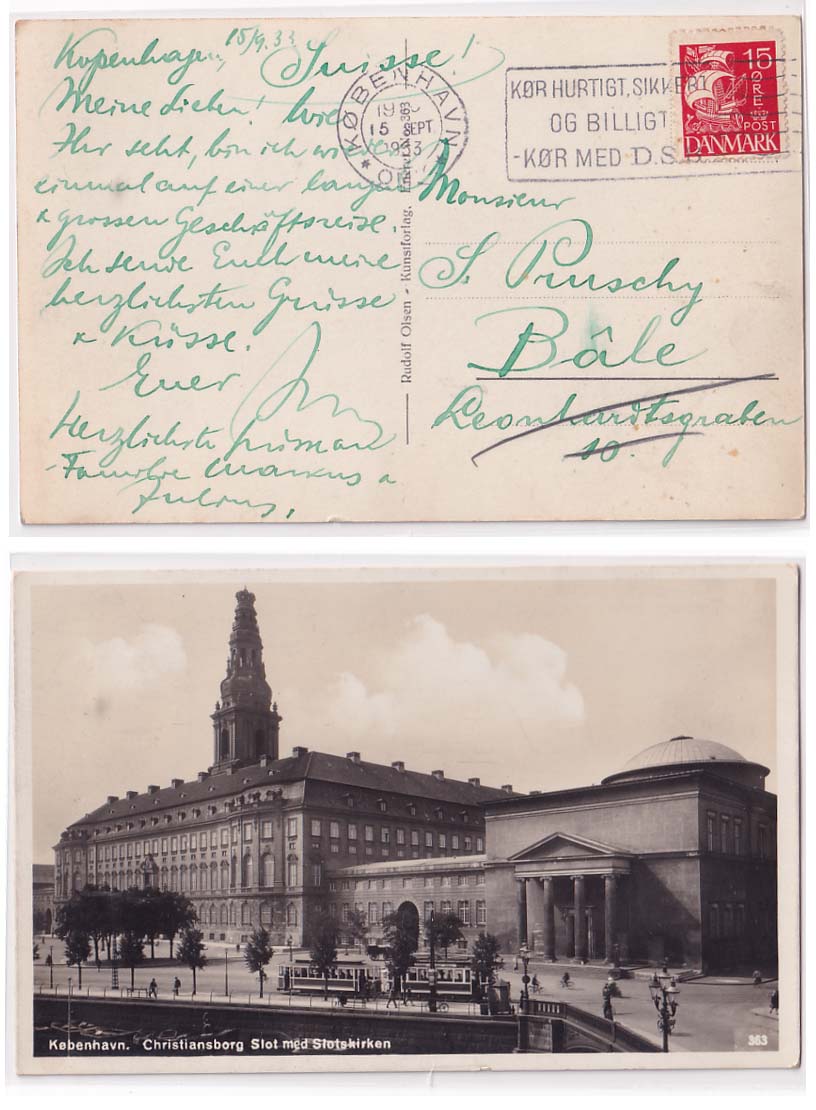 Kopenhagen, 15/9.33
Suisse!
Meine Lieben! Wie
Ihr seht, bin ich wieder
einmal auf einer langen
& grossen Geschäftsreise.
Ich sende Euch meine
herzlichsten Grüsse
& Küsse.
Euer
Herzlichste
Familie Markus &
Julius.
KØBENHAVN
15 SEPT.
1933
KØR HURTIGT, SIKKERT
OG BILLIGT
-KØR MED D.S.B.
15
ØRE
POST
DANMARK
Rudolf Olsen - Kunstforlag, Eneret No. 363
Monsieur
S. Pruschy
Bâle
Leonhardtsgraben
10.
København. Christiansborg Slot med Slotskirken
363